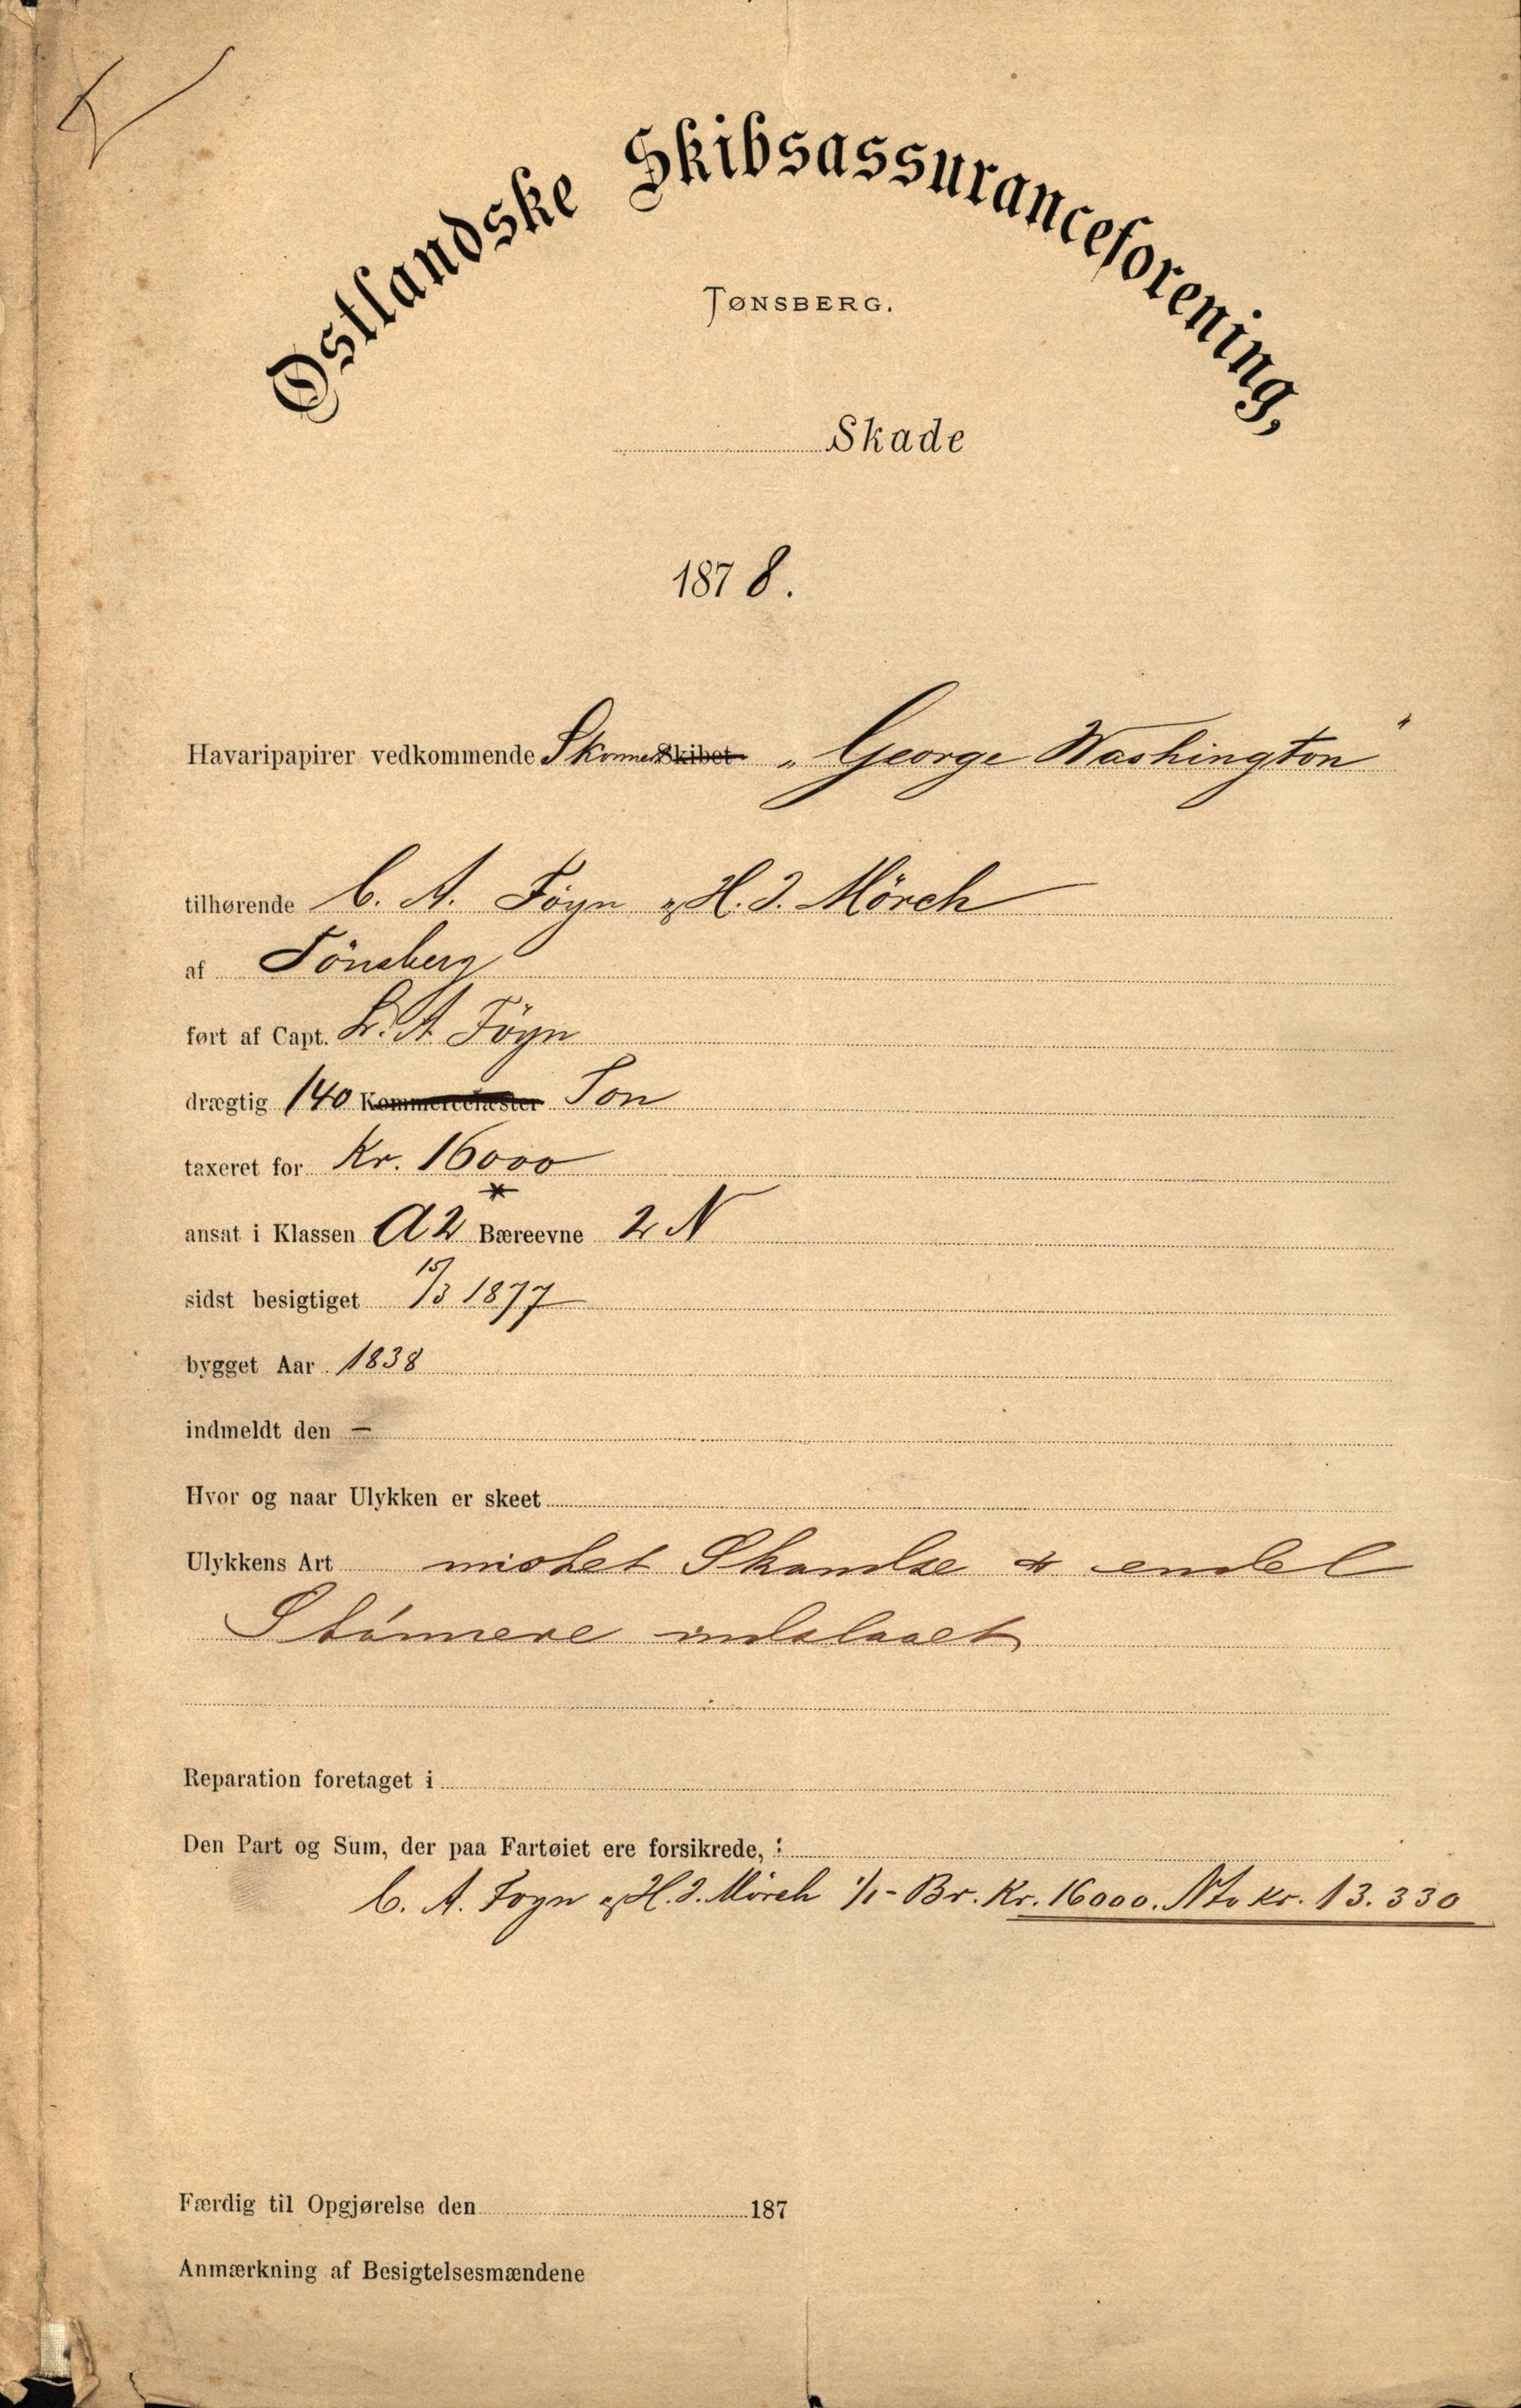 Østlandske Skibsassuranceforening,
TØNSBERG.
Skade
1878.
Havaripapirer vedkommende Skonnert Skibet „George Washington"
tilhørende C. A. Föyn & H. J. Mörch
af Tönsberg
ført af Capt. L. A. Föyn
drægtig 140 Kommercelæster Ton
taxeret for Kr. 16000
ansat i Klassen A2* Bæreevne 2 N
sidst besigtiget 15/3 1877
bygget Aar 1838
indmeldt den —
Hvor og naar Ulykken er skeet
Ulykkens Art mistet Skandse & endel
Stönnere indslaaet
Reparation foretaget i
Den Part og Sum, der paa Fartøiet ere forsikrede, :
C. A. Foyn & H. J. Mörch 1/1 - Br. Kr. 16000. Nto Kr. 13.330
Færdig til Opgjørelse den 187
Anmærkning af Besigtelsesmændene